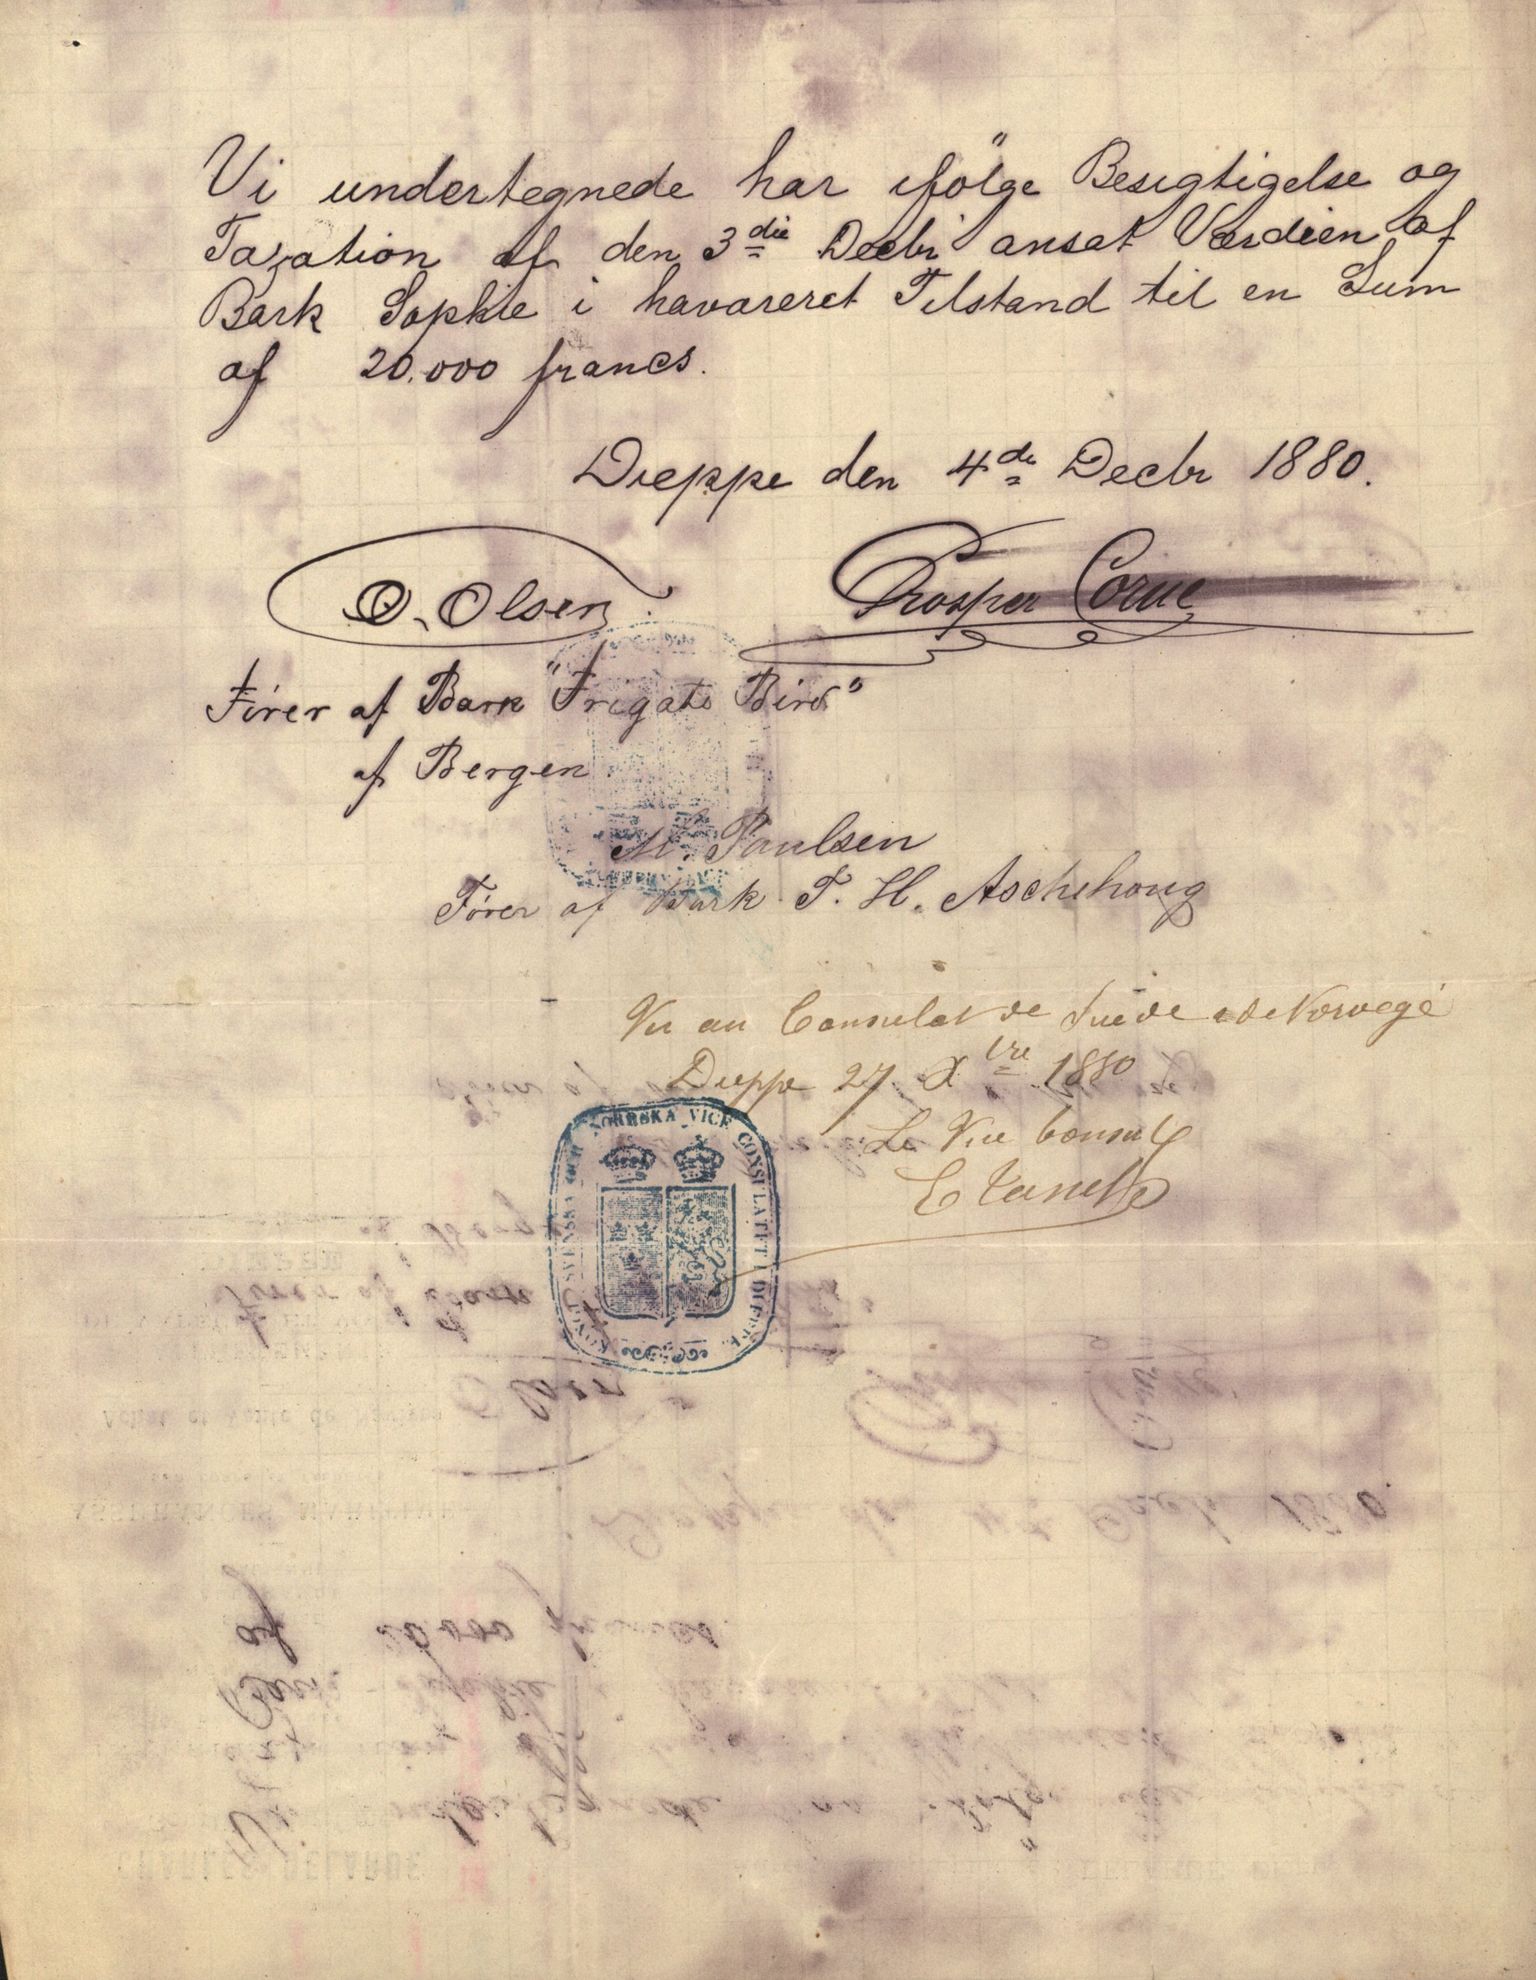 Vi undertegnede har ifölge Besigtigelse og
Taxation af den 3die Decbr ansat Værdien af
Bark Sophie i havareret Tilstand til en Sum
af 20.000 francs.
Dieppe den 4de Decbr 1880.
O. Olsen
Prosper Corue
Förer af Bark "Frigate Bird"
af Bergen
M. Paulsen
Fører af Bark T. H. Aschehoug
Vu au Consulat de Suède & de Norvège
Dieppe 27 Xbre 1880
Le Vice Consul
KONGL. SVENSKA OCH NORRSKA VICE CONSULATET I DIEPPE